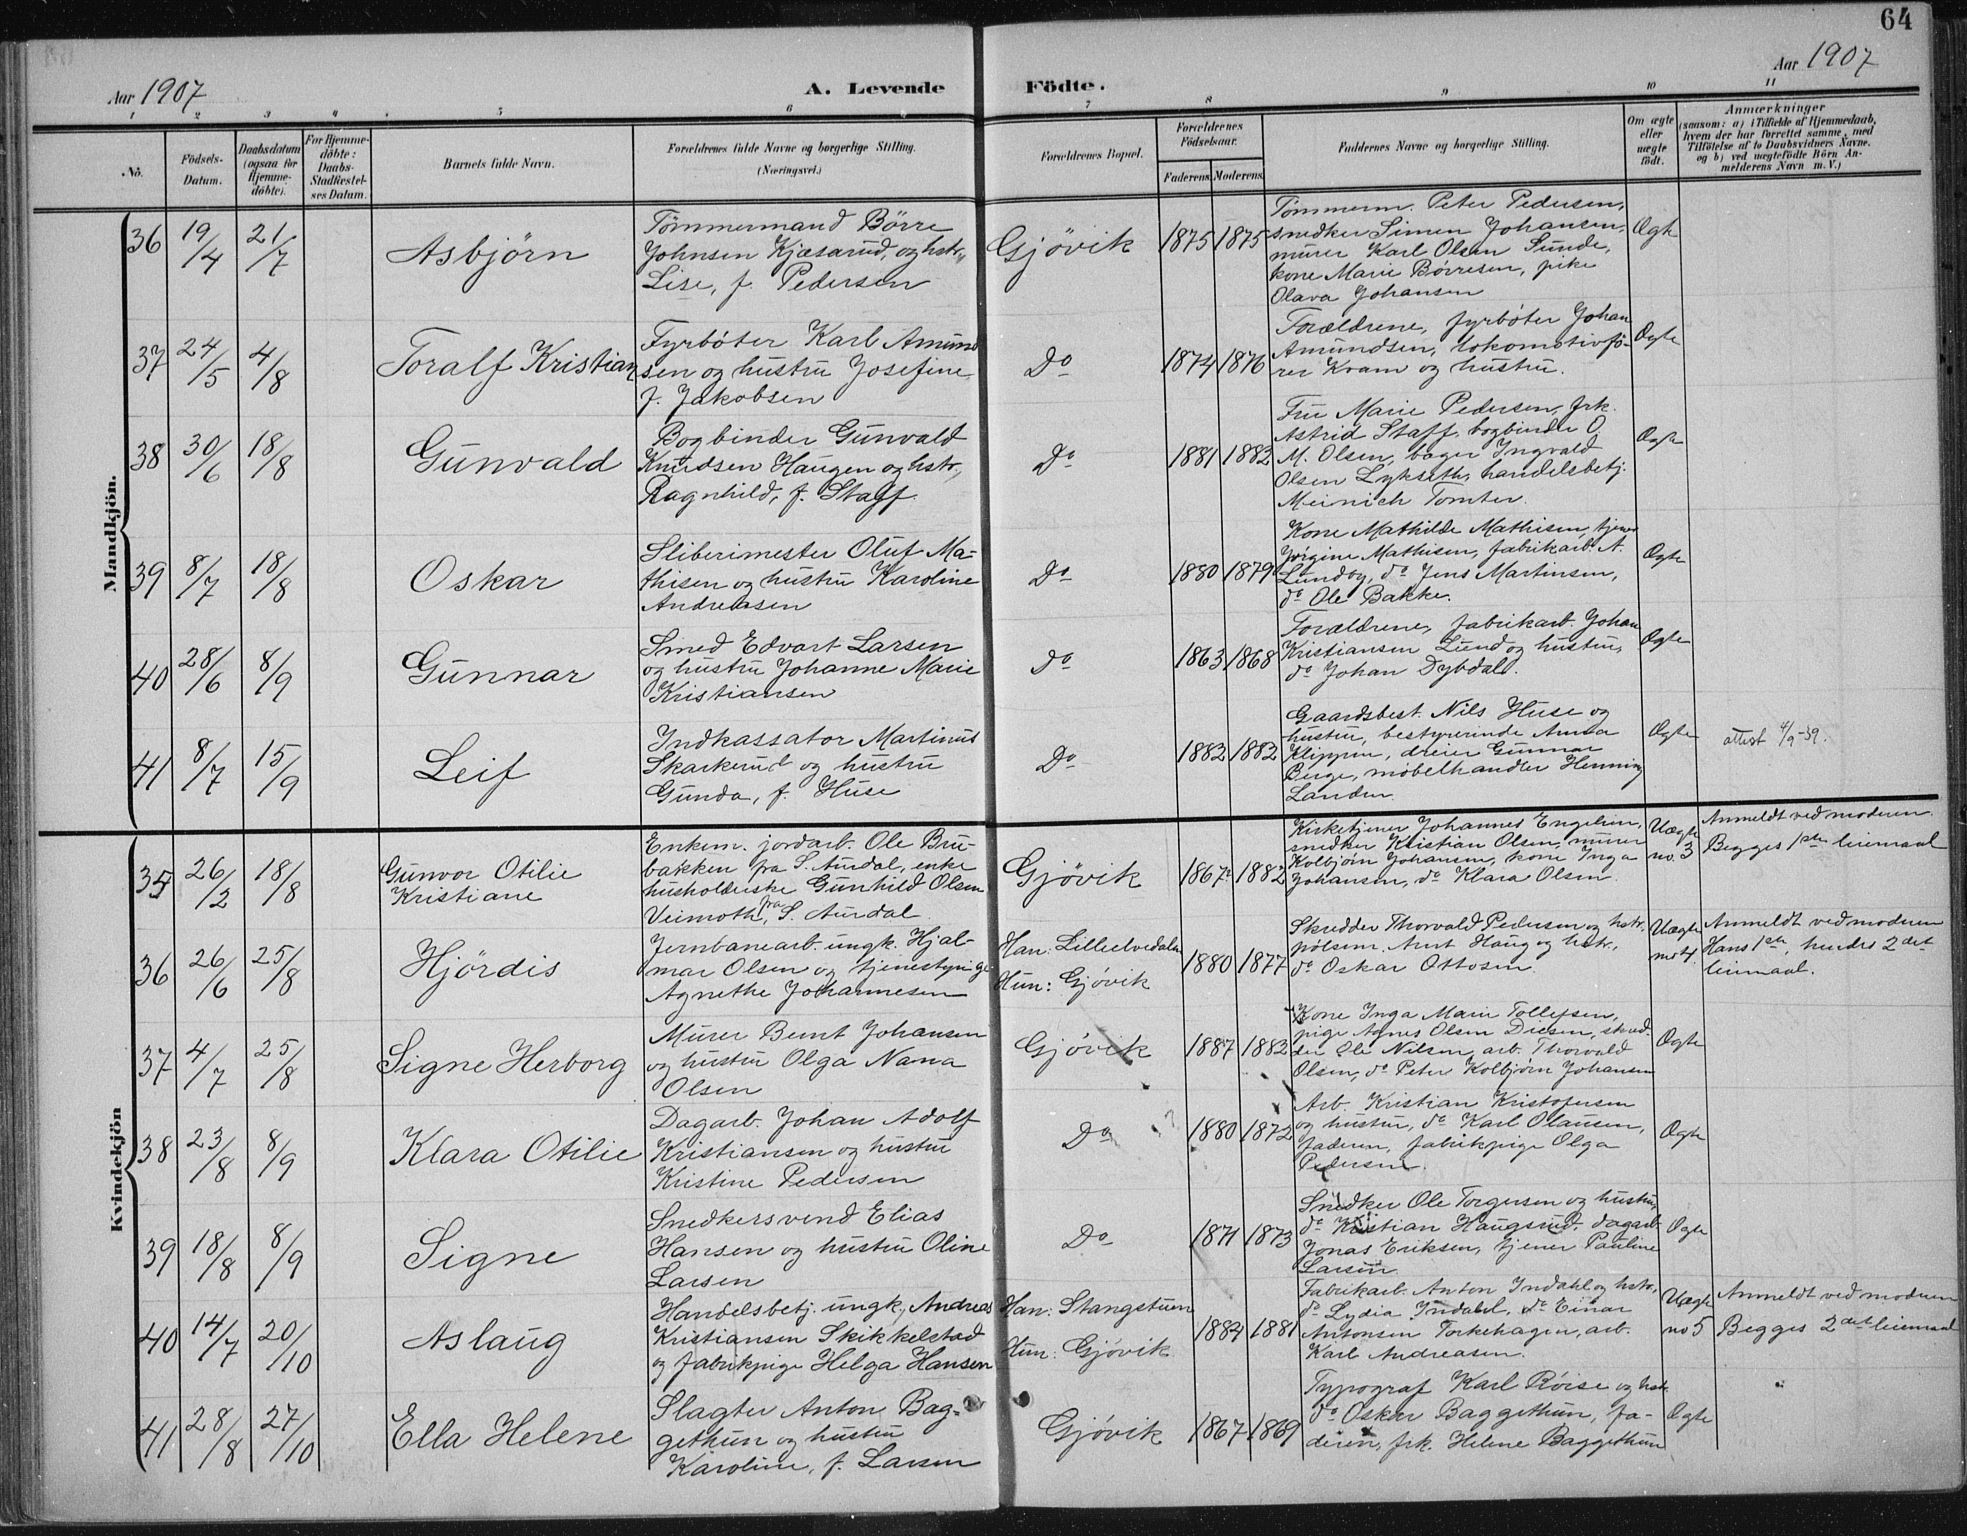 64
Aar 1907
A. Levende Födte.
Aar 1907
1 2 3 4 5 6 7 8 9 10 11
No.
Födsels-
Datum.
Daabsdatum
(ogsaa for
Hjemme-
döbte).
For Hjemme-
döbte:
Daabs-
Stadfæstel-
ses Datum.
Barnets fulde Navn.
Forældrenes fulde Navne og borgerlige Stilling.
(Næringsvei.)
Forældrenes Bopæl.
Forældrenes
Födselsaar.
Faderens. Moderens.
Faddernes Navne og borgerlige Stilling.
Om ægte
eller
uægte
födt.
Anmærkninger
(saasom: a) i Tilfælde af Hjemmedaab,
hvem der har forrettet samme, med
Tilföielse af to Daabsvidners Navne.
og b) ved uægtefödte Börn An-
melderens Navn m. V.)
Mandkjön.
36 19/4 21/7 Asbjörn
Tömmermand Börre
Johnsen Kjæsarud, og hstr.,
Lise, f. Pedersen
Gjövik 1875 1875
Tömmerm. Peter Pedersen,
snedker Simen Johansen,
murer Karl Olsen Sunde,
kone Marie Börresen, pike
Olava Johansen
Ægte
37 24/5 4/8 Toralf Kristian
Fyrböter Karl Amund
sen og hustru Josefine,
f. Jakobsen
Do 1874 1876
Forældrene, fyrböter Johan
Amundsen, lokomotivfö-
rer Kvam og hustru.
Ægte
38 30/6 18/8 Gunvald
Bogbinder Gunvald
Knudsen Haugen og hstr.,
Ragnhild, f. Staff.
Do 1881 1882
Fru Marie Pedersen, frk.
Astrid Staff, bogbinder O.
M. Olsen, bager Ingvald
Olsen Lykseth, handelsbetj.
Meinich Tomter.
Ægte
39 8/7 18/8 Oskar
Sliberimester Oluf Ma-
thisen og hustru Karoline
Andreasen
Do 1880 1879
Kone Mathilde Mathisen, tjener
Jörgine Mathisen, fabrikarb. A.
Lundby, do Jens Martinsen,
do Ole Bakke.
Ægte
40 28/6 8/9 Gunnar
Smed Edvart Larsen
og hustru Johanne Marie
Kristiansen
Do 1863 1868
Forældrene, fabrikarb. Johan
Kristiansen Lund og hustru,
do Johan Dybdal.
Ægte
41 8/7 15/9 Leif
Indkassator Martinus
Skarkerud og hustru
Gunda, f. Huse
Do 1882 1882
Gaardsbest. Nils Huse og
hustru, bestyrerinde Anna
Klippen, dreier Gunnar
Berge, möbelhandler Henning
Landen
Ægte
attest 4/9-39.
Kvindekjön
35 26/2 18/8
Gunvor Otilie
Kristiane
Enkem. jordarb. Ole Bru-
bakken fra S. Aurdal, enke
husholderske Gunhild Olsen
Veimoth, fra S. Aurdal.
Gjövik 1867 1882
Kirketjener Johannes Engelsen,
snedker Kristian Olsen, murer
Kolbjörn Johansen, kone Inga
Johansen, do Klara Olsen.
Uægte
no 3
Anmeldt ved moderen.
Begges 1ste leiemaal
36 26/6 25/8 Hjördis
Jernbanearb. ungk. Hjal-
mar Olsen og tjenestepige
Agnethe Johannesen
Han: Lilleelvedalen
Hun: Gjövik
1880 1877
Skrædder Thorvald Pedersen og hstr.,
pölsem. Amt Haug og hstr.,
do Oskar Ottosen.
Uægte
no 4.
Anmeldt ved moderen
Hans 1ste, hendes 2det
leiemaal.
37 4/7 25/8 Signe Herborg
Murer Bernt Johansen
og hustru Olga Nana
Olsen
Gjövik 1887 1882
Kone Inga Marie Tollefsen,
pige Agnes Olsen Diesen, skræd-
der Ole Nilsen, arb. Thorvald
Olsen, do Peter Kolbjörn Johansen
Ægte
38 23/8 8/9 Klara Otilie
Dagarb. Johan Adolf
Kristiansen og hustru
Kristine Pedersen
Do 1880 1872
Arb. Kristian Kristofersen
og hustru, do Karl Olausen,
faderen, fabrikpige Olga
Pedersen.
Ægte
39 18/8 8/9 Signe
Snedkersvend Elias
Hansen og hustru Oline
Larsen
Do 1871 1873
Snedker Ole Torgersen og hustru,
do Kristian Haugsrud, dagarb.
Jonas Eriksen, tjener Pauline
Larsen.
Ægte
40 14/7 20/10 Aslaug
Handelsbetj. ungk., Andreas
Kristiansen Skikkelstad
og fabrikpige Helga Hansen
Han: Stangstuen
Hun: Gjövik
1884 1881
Fabrikarb. Anton Indahl og hstr.,
do Lydia Indahl, do Einar
Antonsen Torkehagen, arb.
Karl Andreasen.
Uægte
no 5
Anmeldt ved moderen
Begges 2det leiemaal
41 28/8 27/10 Ella Helene
Slagter Anton Bag-
gethun og hustru
Karoline, f. Larsen
Gjövik 1867 1869
Typograf Karl Röise og hstr.
do Oskar Baggethun, fa-
deren, frk. Helene Baggethun
Ægte